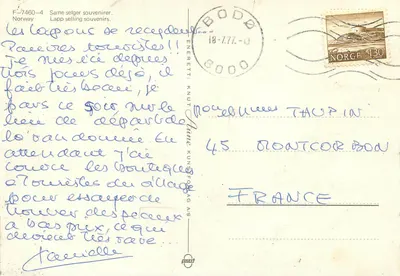 F-7460-4 Same selger souvenirer.
Norway Lapp selling souvenirs.
Les lapons se recyclent...
Pauvres touristes!!
Je me suis ici depuis
trois jours déjà, il
fait très beau, je
pars ce soir sur le
lieu de départ de
la randonnée. En
attendant j'ai
couru les boutiques
à touristes du village
pour essayer de
trouver des peaux
à bas prix, ce qui
devient très rare...
Danielle
ENERETT: KNUT Aune KUNSTFORLAG AS
BODØ
18-7.77.
8000
NORGE 130
Mr et Mme TAUPIN
45 MONTCORBON
FRANCE